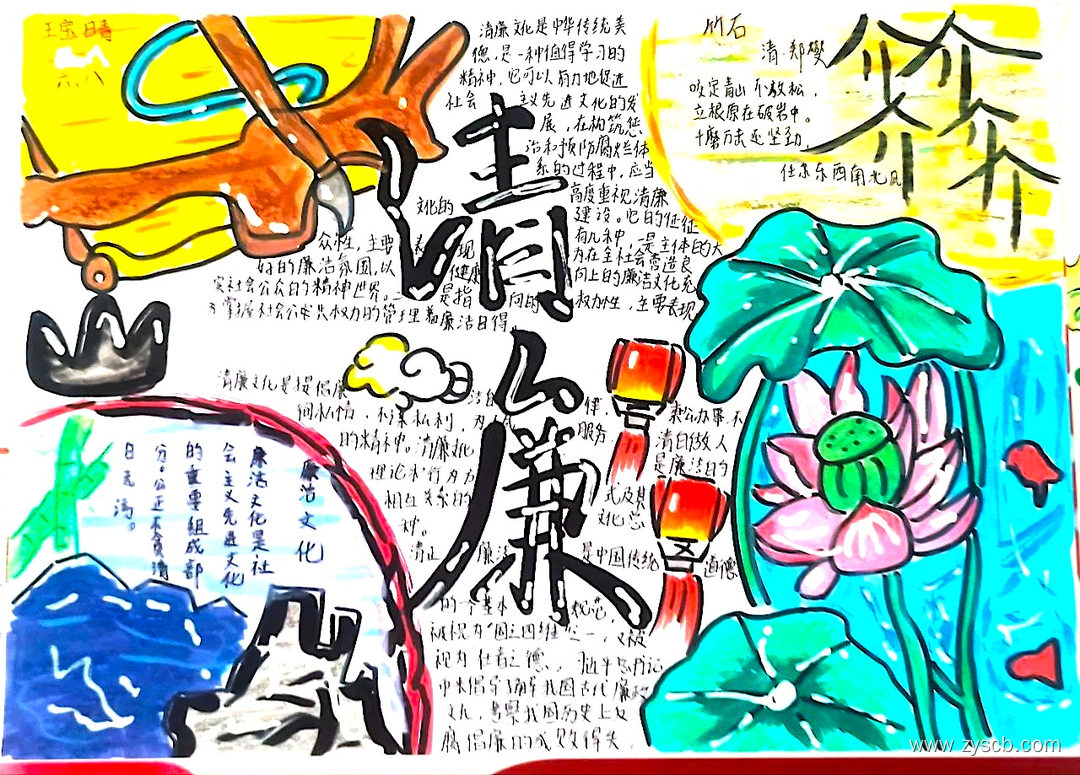 王宝晴
六.八
清廉文化是中华传统美
德,是一种值得学习的
精神,它可以有力地促进
社会主义先进文化的发
展,在构筑惩
治和预防腐烂体
系的过程中,应当
文化的高度重视清廉
建设。它的征征
众性,主要表现有几种,一是主体的大
好的廉洁氛围,以为在全社会营造良
实社会公众的精神世界。健康向上的廉洁文化充
二是指向的权力性,主要表现
为掌握社会公共权力的管理着廉洁自得。
清廉
清廉文化是提倡廉洁
律,秉公办事,不
徇私情,不谋私利,为
服务,清白做人
的精神。清廉
是廉洁的
理论和行为方式及其
相互关系的文化总
种。
清正廉洁是中国传统道德
的一个基本规范,
被视为“国之四维”之一,又被
视为仕者之德。
中来倡导了解我国古代廉政
文化,考察我国历史上反
腐倡廉的成败得失,
竹石
清·郑燮
咬定青山不放松,
立根原在破岩中。
千磨万击还坚劲,
任尔东西南北风
廉洁文化
廉洁文化是社
会主义先进文化
的重要组成部
分。公正不贪清
白无污。
www.zyscb.com